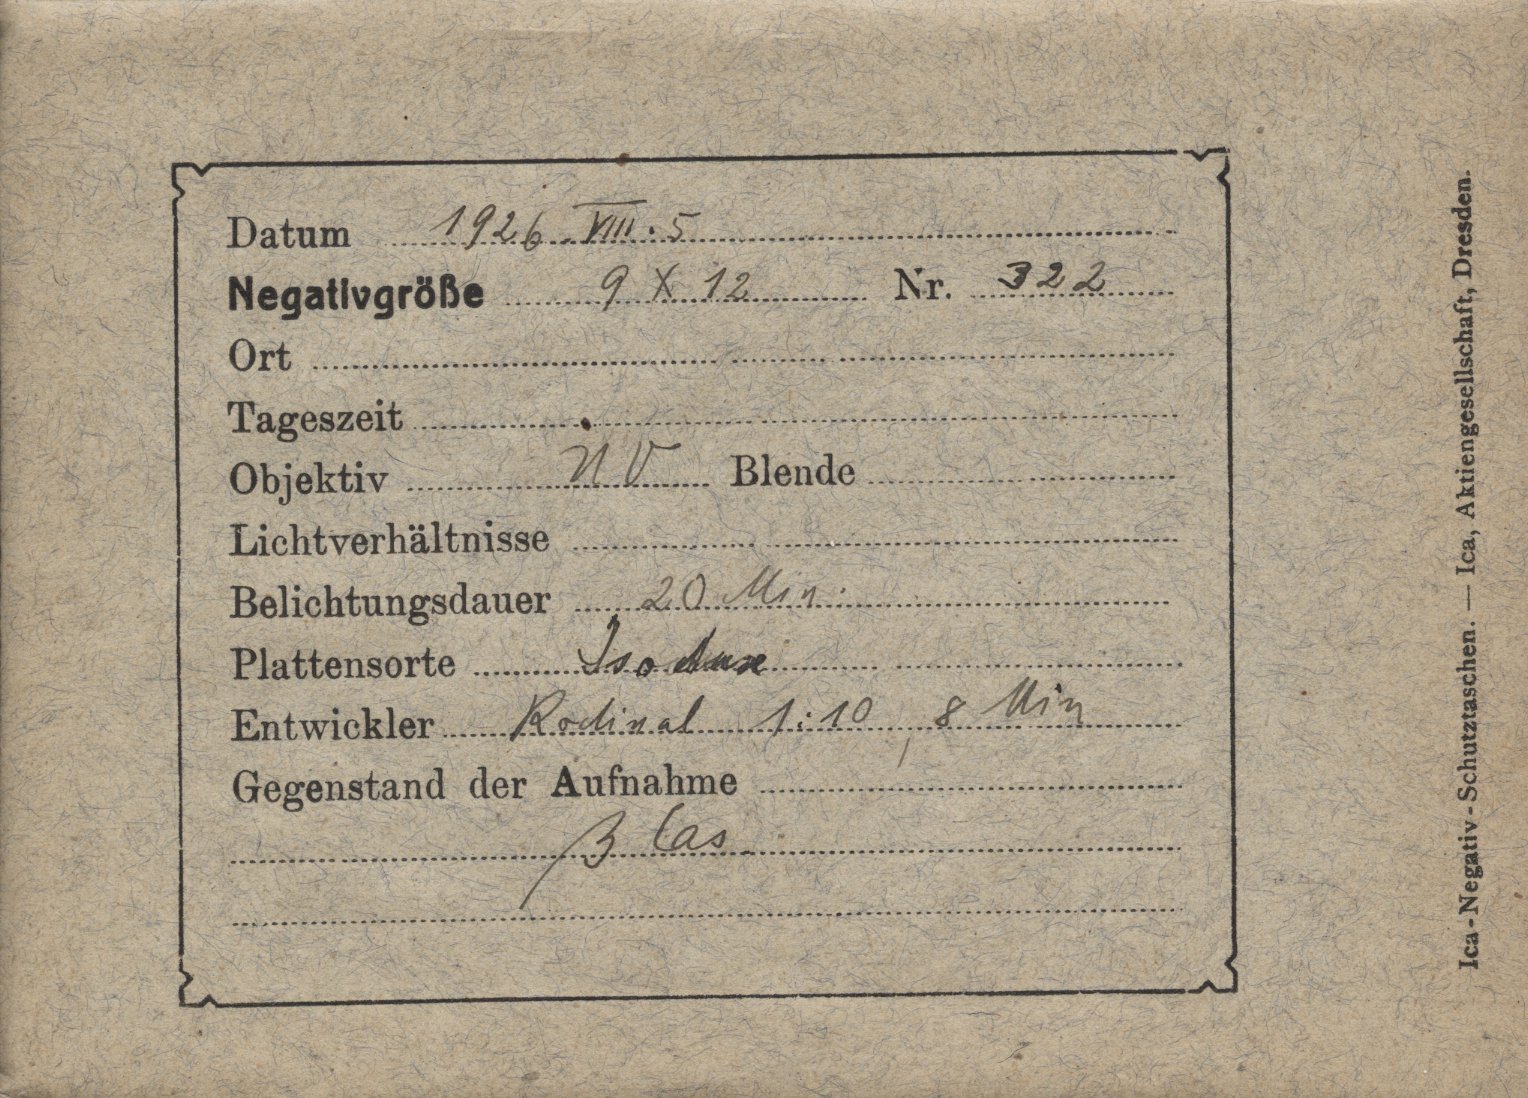 Datum 1926. VIII. 5
Negativgröße 9 X 12 Nr. 322
Ort
Tageszeit
Objektiv UV Blende
Lichtverhältnisse
Belichtungsdauer 20 Min.
Plattensorte
Entwickler Rodinal 1:10, 8 Min
Gegenstand der Aufnahme
β Cas
Ica-Negativ-Schutztaschen. — Ica, Aktiengesellschaft, Dresden.